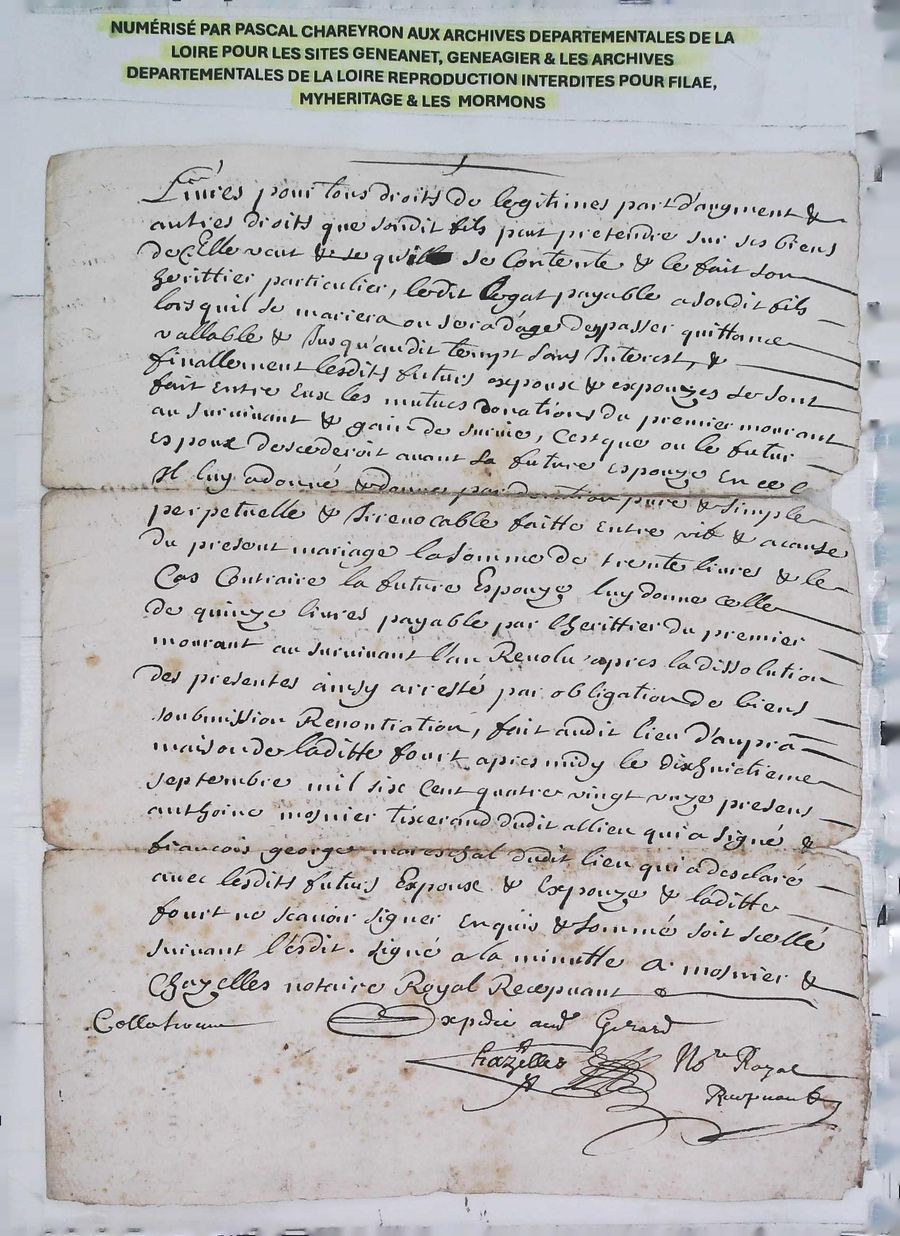 NUMÉRISÉ PAR PASCAL CHAREYRON AUX ARCHIVES DEPARTEMENTALES DE LA
LOIRE POUR LES SITES GENEANET, GENEAGIER & LES ARCHIVES
DEPARTEMENTALES DE LA LOIRE REPRODUCTION INTERDITES POUR FILAE,
MYHERITAGE & LES MORMONS
Livres pour tous droits de legitimes part d'augment &
autres droits que sondit fils peut pretendre sur ses biens
de Elle veut & se qu'il se Contente & le fait son
herittier particulier, ledit legat payable a sondit fils
lorsquil se mariera ou sera d'age de passer quittance
vallable & Jusqu'audit tempt sans Interest, &
finallement lesdits futurs expoux & expouzes se sont
fait Entre Eux les mutues donations du premier mourant
au survivant & gain de survie, C'est que ou le futur
Espoux descederoit avant la future espouze En ce
Il luy a donné & donne par donation pure & simple
perpetuelle & Irrevocable faitte Entre vif & a cause
du present mariage la somme de trente livres & le
Cas Contraire la future Espouze luy donne celle
de quinze livres payable par l'herittier du premier
mourant au survivant l'an Revolu apres la dissolution
des presentes ainsy arresté par obligation de biens
soubmission Renontiation, fait audit lieu d'aupra
maison de laditte fourt apres midy le dixhuictieme
septembre mil six Cent quatre vingt unze presens
anthoine mosnier tixerand dudit allieu qui a signé &
francois george mareschal dudit lieu qui a desclaré
avec lesdits futurs Expoux & Expouze & laditte
fourt ne scavoir signer Enquis & sommé soit scellé
suivant l'esdit. signé a la minutte A mosnier &
Chazelles notaire Royal Recepvant
Collationné
Expedie aud Gerard
Chazelles Nore Royal
Recepvant